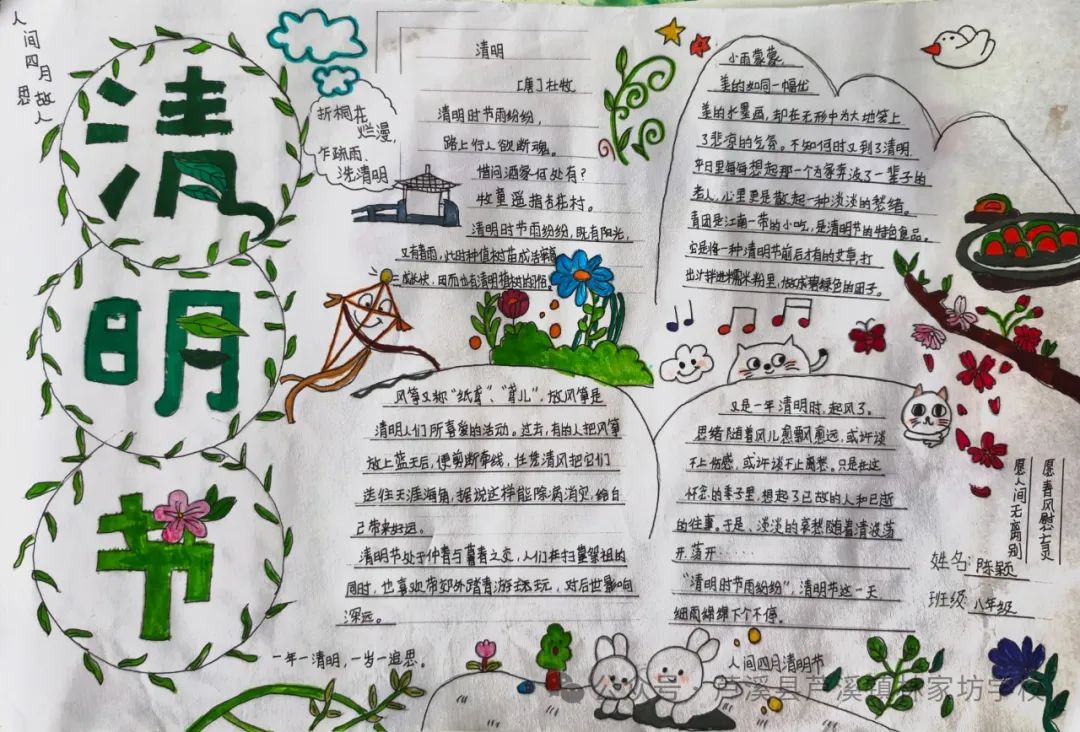 人间四月故人
思
清
明
节
折桐花
烂漫，
乍疏雨、
洗清明
清明
[唐]杜牧
清明时节雨纷纷，
路上行人欲断魂。
借问酒家何处有？
牧童遥指杏花村。
清明时节雨纷纷，既有阳光，
又有春雨，此时种植树苗成活率高
成长快，因而也有清明植树的习俗
小雨蒙蒙
美的如同一幅优
美的水墨画，却在无形中为大地笼上
了悲凉的气氛。不知何时又到了清明
平日里每每想起那一个为家奔波了一辈子的
老人，心里更是散起一种淡淡的愁绪。
青团是江南一带的小吃，是清明节的特色食品。
它是将一种清明节前后才有的艾草，打
出汁拼进糯米粉里，做成碧绿色的团子。
风筝又称"纸鸢"、"鸢儿"，放风筝是
清明人们所喜爱的活动。过去，有的人把风筝
放上蓝天后，便剪断牵线，任凭清风把它们
送往天涯海角，据说这样能除病消灾，给自
己带来好运。
清明节处于仲春与暮春之交，人们在扫墓祭祖的
同时，也喜欢带郊外踏青游玩，对后世影响
深远。
又是一年清明时，起风了。
思绪随着风儿愈飘愈远，或许谈
不上伤感，或许谈不上离愁。只是在这
怀念的季节里，想起了已故的人和已逝
的往事。于是、淡淡的哀愁随着清波荡
开，荡开……
"清明时节雨纷纷"，清明节这一天
细雨绵绵下个不停。
愿春风慰亡灵
愿人间无离别
姓名：陈颖
班级：八年级
一年一清明，一岁一追思。
人间四月清明节
公众号·芦溪县芦溪镇
家坊学校